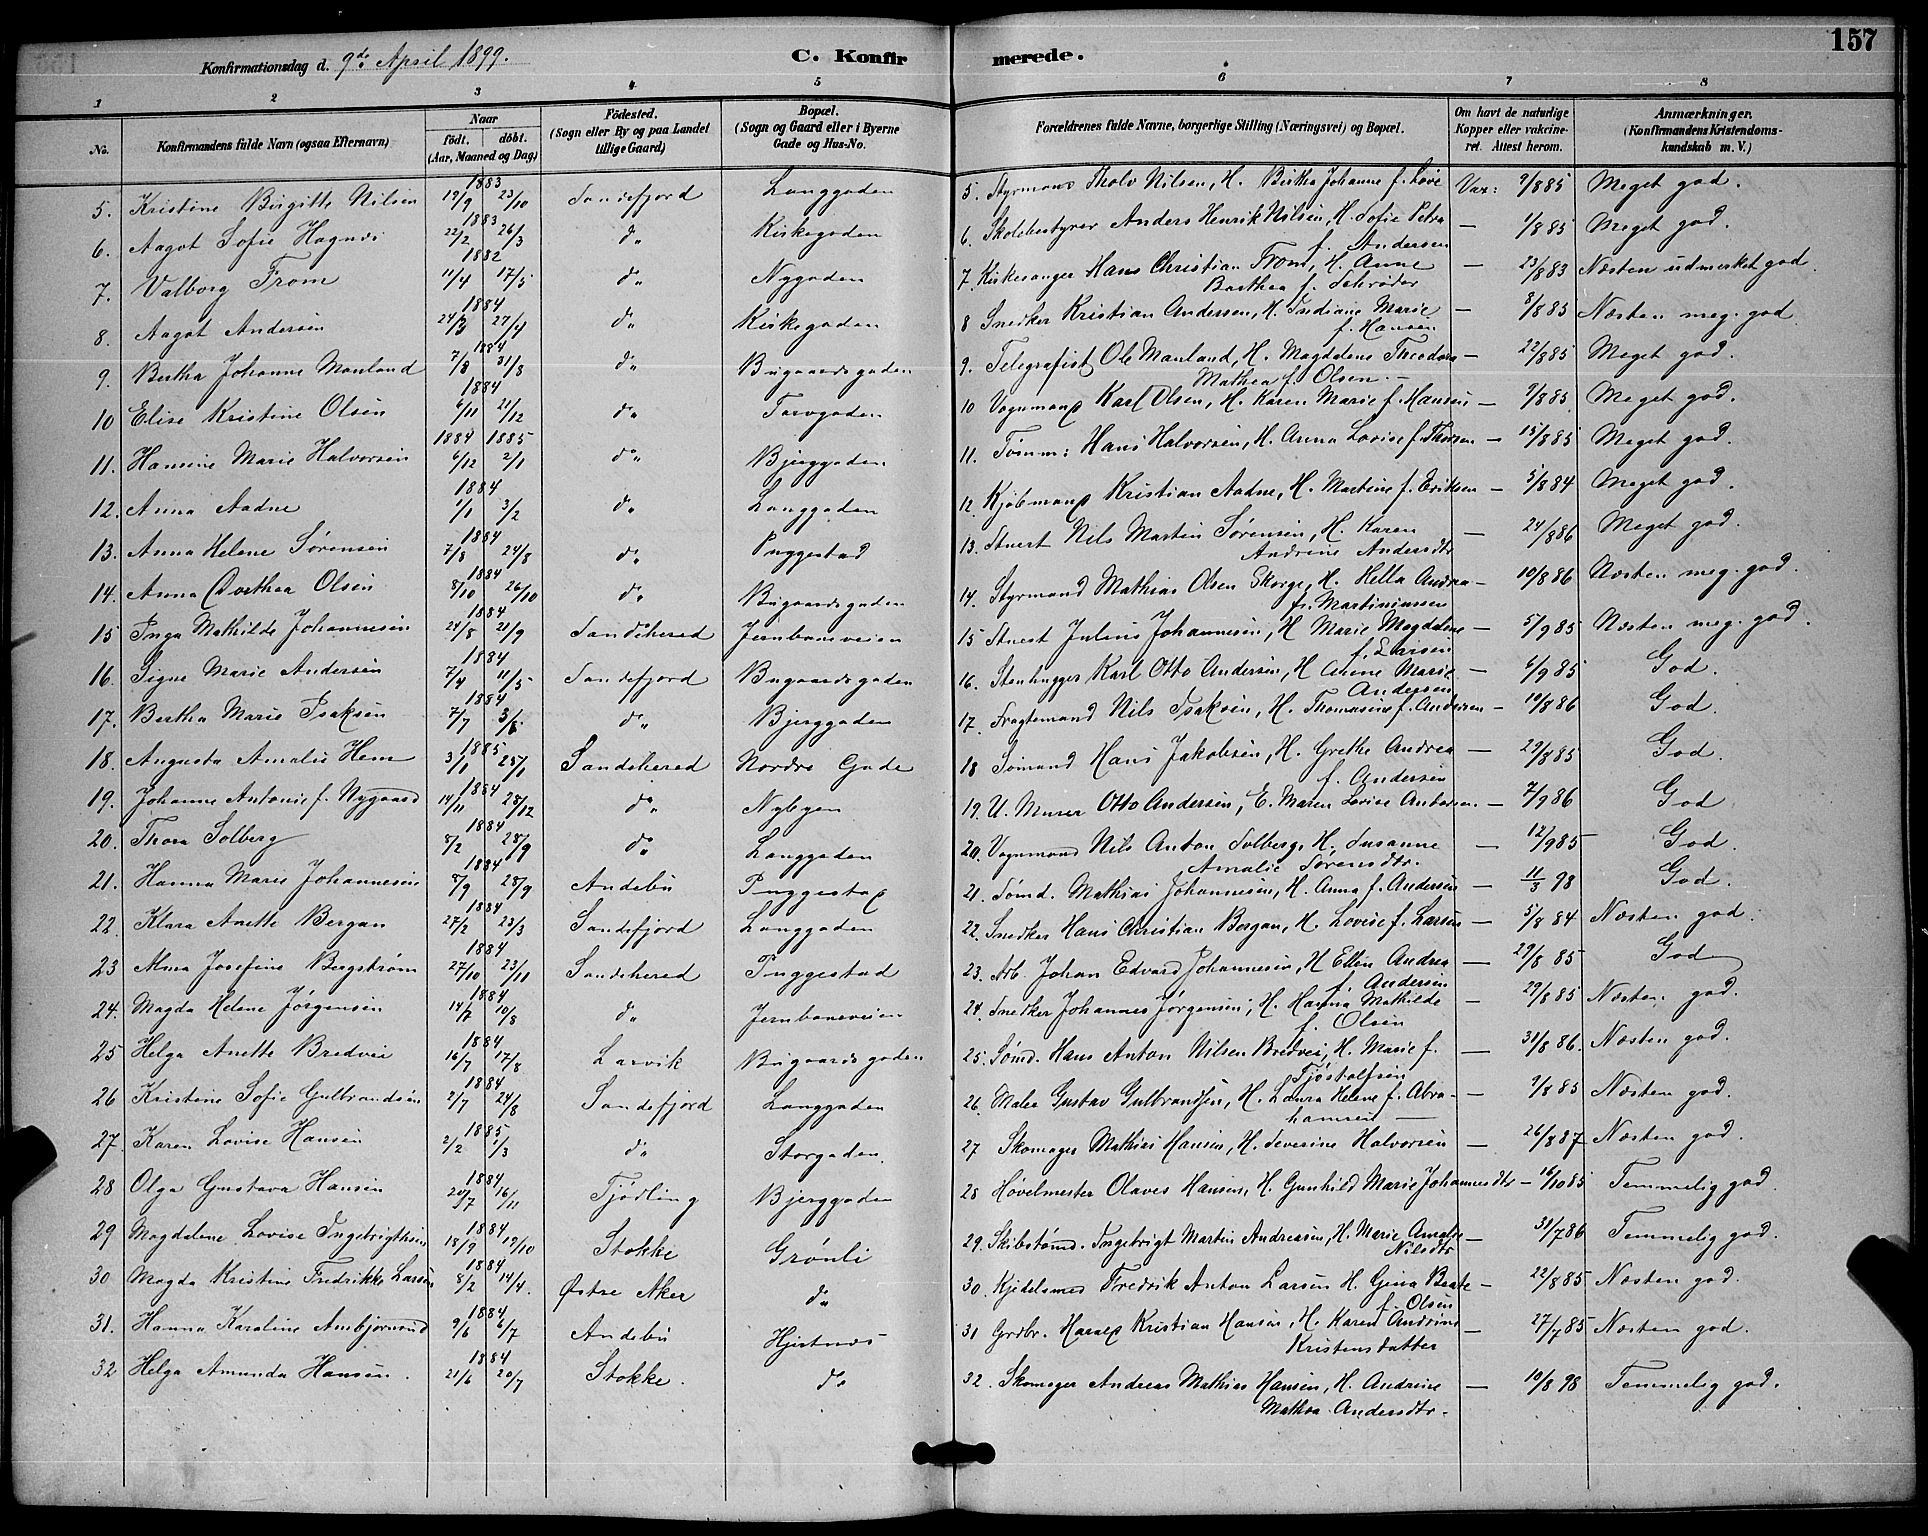 157
Konfirmationsdag d. 9de April 1899. C. Konfirmerede.
1 2 3 4 5 6 7 8
No. Konfirmandens fulde Navn (ogsaa Efternavn) Naar født. døbt. (Aar, Maaned og Dag) Fødested. (Sogn eller By og paa Landet tillige Gaard) Bopæl. (Sogn og Gaard eller i Byerne Gade og Hus-No. Forældrenes fulde Navne, borgerlige Stilling (Næringsvei) og Bopæl. Om havt de naturlige Kopper eller vakcineret. Attest herom. Anmærkninger. (Konfirmandens Kristendomskundskab m. V.)
5. Kristine Birgitte Nilsen 1883 19/9 23/10 Sandefjord Langgaden 5. Styrmand Tholv Nilsen, H. Bertha Johanne f. Løve Vac: 9/8 85 Meget god.
6. Aagot Sofie Hagnæs 1883 22/2 26/3 do Kirkegaden 6. Skolebestyrer Anders Henrik Nilsen, H. Sofie Petra f. Andersen — 1/8 85 Meget god.
7. Valborg From 1882 11/4 17/5 do Nygaden 7. Kirkesanger Hans Christian From, H. Anne Barthea f. Schrøder — 23/8 83 Næsten udmerket god.
8. Aagot Andersen 1884 24/3 27/4 do Kirkegaden 8 Snedker Kristian Andersen, H. Indiane Marie f. Hansen — 8/8 85 Næsten meg. god
9. Bertha Johanne Manland 1884 7/8 31/8 do Bugaardsgaden 9. Telegrafist Ole Manland, H. Magdalene Theodora Mathea f. Olsen. — 22/8 85 Meget god.
10 Elise Kristine Olsen 1884 6/11 21/12 do Torvgaden 10 Vognmand Karl Olsen, H. Karen Marie f. Hansen — 7/8 85 Meget god.
11. Hansine Marie Halvorsen 1884 1885 6/12 2/1 do Bjerggaden 11. Tømm: Hans Halvorsen, H. Anna Lovise f. Thorsen — 15/8 85 Meget god.
12. Anna Aadne 1884 1/1 3/2 do Langgaden 12. Kjøbmand Kristian Aadne, H. Martine f. Eriksen — 5/8 84 Meget god.
13. Anna Helene Sørensen 1884 7/8 24/8 do Puggestad 13. Stuert Nils Martin Sørensen, H. Karen Andrine Andersdtr — 24/8 86 Meget god.
14. Anna Dorthea Olsen 1884 8/10 26/10 do Bugaardsgaden 14. Styrmand Mathias Olsen Skorge, H. Hella Andrea f. Martiniussen — 10/8 86 Næsten meg. god.
15 Inga Mathilde Johannesen 1884 24/8 21/9 Sandeherred Jernbaneveien 15 Stuert Julius Johannesen, H Marie Magdalene f. Larsen — 5/9 85 Næsten meg. god.
16. Signe Marie Andersen 1884 7/4 11/5 Sandefjord Bugaardsgaden 16. Stenhugger Karl Otto Andersen, H Anine Marie Andersen — 6/9 85 God.
17. Bertha Marie Isaksen 1884 7/7 3/8 do Bjerggaden 17. Fragtemand Nils Isaksen, H. Thomasine f. Andersen — 10/8 86 God.
18. Augusta Amalie Hem 1885 3/1 25/1 Sandeherred Nordre Gade 18 Sømand Hans Jakobsen, H. Grethe Andrea f. Andersen — 29/8 85 God.
19. Johanne Antonie f. Nygaard 1884 14/11 28/12 do Nybyen 19. U. Murer Otto Andersen, E. Maren Lovise Andersen — 7/9 86 God
20. Thora Solberg 1884 8/2 28/9 do Langgaden 20. Vognmand Nils Anton Solberg, H. Susanne Amalie Sørensdtr. — 12/9 85 God.
21. Hanna Marie Johannesen 1884 8/9 28/9 Andebu Puggestad 21. Sømd. Mathias Johannesen, H. Anna f. Andersen — 11/3 98 God.
22. Klara Anette Bergan 1884 27/2 23/3 Sandefjord Langgaden 22. Snedker Hans Christian Bergan, H. Lovise f. Larsen — 5/8 84 Næsten god.
23 Alma Josefine Bergstrøm 1884 27/10 23/11 Sandeherred Puggestad 23. Arb. Johan Edvard Johannesen, H Ellen Andrea f. Andersen — 29/8 85 God
24. Magda Helene Jørgensen 1884 14/7 10/8 do Jernbaneveien 24. Snedker Johannes Jørgensen, H. Hanna Mathilde f. Olsen — 29/8 85 Næsten god.
25 Helga Anette Bredvei 1884 16/7 17/8 Larvik Bugaardsgaden 25. Sømd. Hans Anton Nilsen Bredvei, H. Marie f. Tjøstolfsen — 31/8 86. Næsten god.
26 Kristine Sofie Gulbrandsen 1884 2/7 24/8 Sandefjord Langgaden 26. Maler Gustav Gulbrandsen, H. Laura Helene f. Abrahamsen — 9/8 85 Næsten god.
27. Karen Lovise Hansen 1885 2/2 1/3 do Storgaden. 27 Skomager Mathias Hansen, H. Severine Halvorsen — 26/8 87 Næsten god.
28 Olga Gustava Hansen 1884 20/7 16/11 Tjødling Bjerggaden 28 Høvelmester Olaves Hansen, H. Gunhild Marie Johannesdtr — 16/10 85 Temmelig god.
29 Magdalene Lovise Ingebrigthsen 1884 18/9 19/10 Stokke Grønli 29. Skibstømd. Ingebrigt Martin Andreasen, H. Marie Amalie Nilsdtr — 31/7 86 Temmelig god.
30 Magda Kristine Fredrikke Larsen 1884 8/2 14/4. Østre Aker do 30. Kjedelsmed Fredrik Anton Larsen H. Gina Beate f. Olsen — 22/8 85 Næsten god.
31. Hanna Karoline Arnbjørnrød 1884 9/6 6/7 Andebu Hjertnæs 31 Grdbr. Kristian Hansen, H. Karen Andrine Kristensdatter — 27/7 85 Næsten god.
32 Helga Amunda Hansen. 1884 21/6 20/7 Stokke. do 32. Skomager Andreas Mathias Hansen, H. Andrine Mathea Andersdtr. — 10/8 98 Temmelig god.